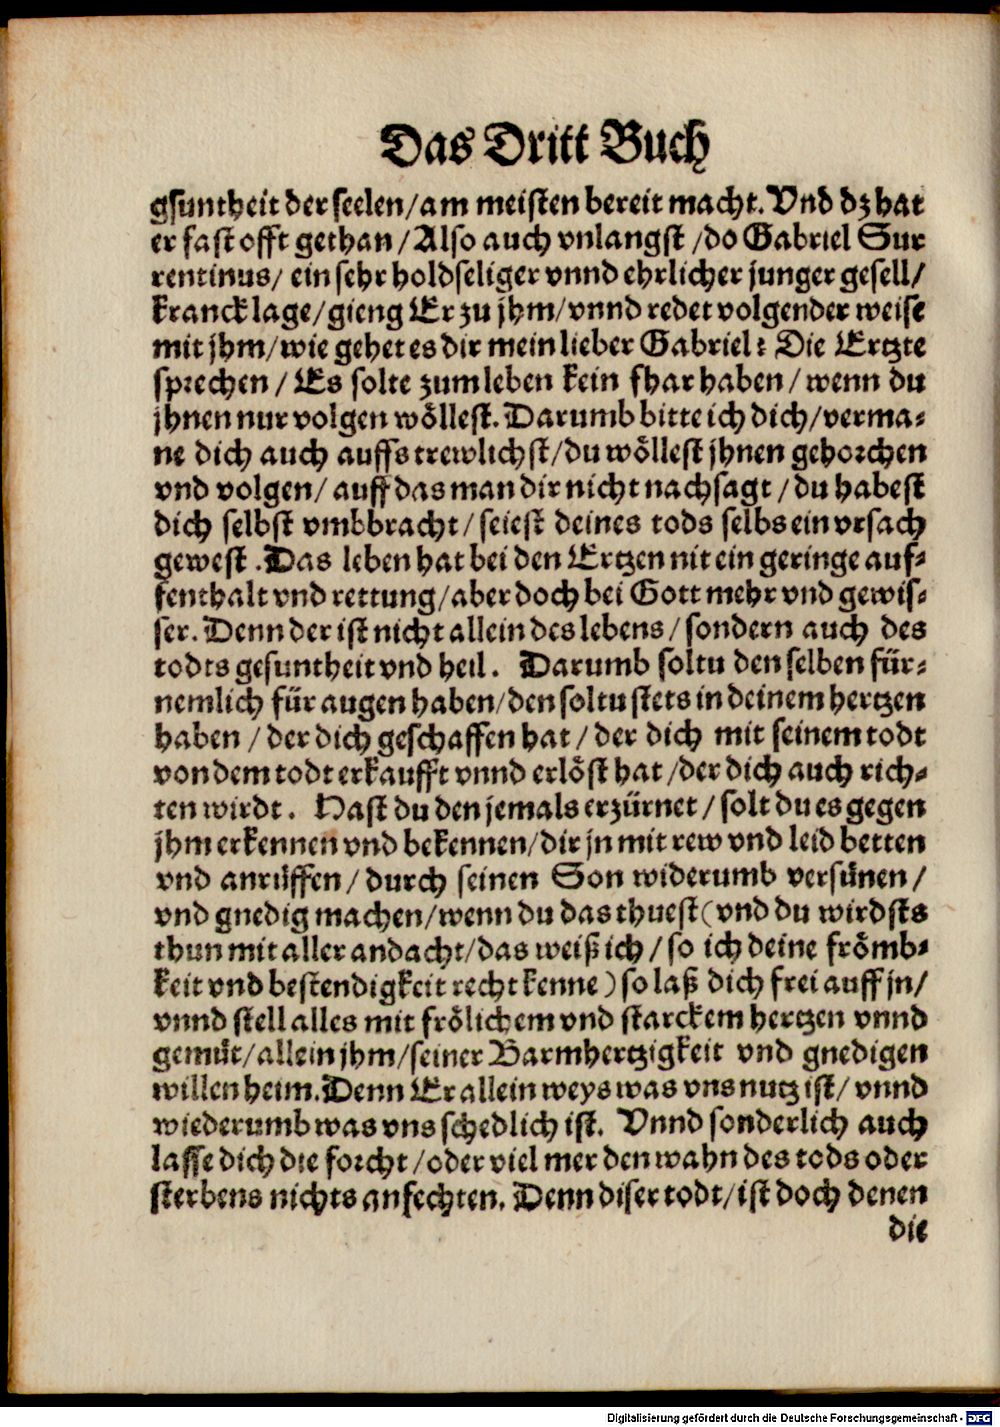 Das Dritt Buch
gsuntheit der seelen/am meisten bereit macht. Vnd dz hat
er fast offt gethan/Also auch vnlangst/do Gabriel Sur
rentinus/ ein sehr holdseliger vnnd ehrlicher junger gesell/
kranck lage/gieng Er zu jhm/vnnd redet volgender weise
mit jhm/wie gehet es dir mein lieber Gabriel? Die Ertzte
sprechen/ Es solte zum leben kein fhar haben/wenn du
jhnen nur volgen wöllest. Darumb bitte ich dich/verma-
ne dich auch auffs trewlichst/du wöllest jhnen gehorchen
vnd volgen/ auff das man dir nicht nachsagt/du habest
dich selbst vmbbracht/seiest deines tods selbs ein vrsach
gewest. Das leben hat bei den Ertzen nit ein geringe auf-
fenthalt vnd rettung/aber doch bei Gott mehr vnd gewis-
ser. Denn der ist nicht allein des lebens/sondern auch des
todts gesuntheit vnd heil. Darumb soltu den selben für-
nemlich für augen haben/den soltu stets in deinem hertzen
haben/der dich geschaffen hat/der dich mit seinem todt
von dem todt erkaufft vnnd erlöst hat/der dich auch rich-
ten wirdt. Hast du den jemals erzürnet/solt du es gegen
jhm erkennen vnd bekennen/dir jn mit rew vnd leid betten
vnd anrüffen/durch seinen Son widerumb versünen/
vnd gnedig machen/wenn du das thuest(vnd du wirdsts
thun mit aller andacht/das weiß ich/so ich deine frömb-
keit vnd bestendigkeit recht kenne) so laß dich frei auff jn/
vnnd stell alles mit frölichem vnd starckem hertzen vnnd
gemüt/allein jhm/seiner Barmhertzigkeit vnd gnedigen
willen heim. Denn Er allein weys was vns nutz ist/ vnnd
wiederumb was vns schedlich ist. Vnnd sonderlich auch
lasse dich die forcht/oder viel mer den wahn des tods oder
sterbens nichts anfechten. Denn diser todt/ist doch denen
die
Digitalisierung gefördert durch die Deutsche Forschungsgemeinschaft - DFG